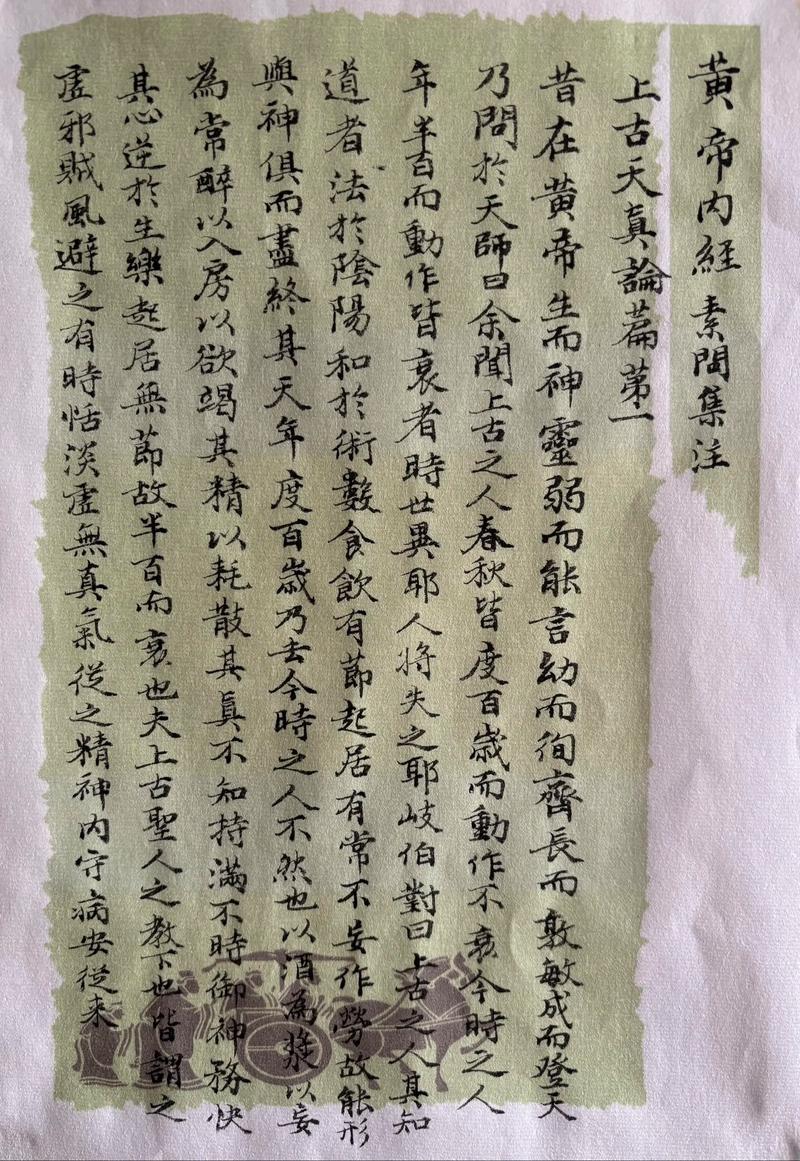 黃帝內經素問集注
上古天真論篇第一
昔在黃帝生而神靈弱而能言幼而徇齊長而敦敏成而登天
乃問於天師曰余聞上古之人春秋皆度百歲而動作不衰今時之人
年半百而動作皆衰者時世異耶人將失之耶岐伯對曰上古之人其知
道者法於陰陽和於術數食飲有節起居有常不妄作勞故能形
與神俱而盡終其天年度百歲乃去今時之人不然也以酒為漿以妄
為常醉以入房以欲竭其精以耗散其真不知持滿不時御神務快
其心逆於生樂起居無節故半百而衰也夫上古聖人之教下也皆謂之
虛邪賊風避之有時恬淡虛無真氣從之精神內守病安從来